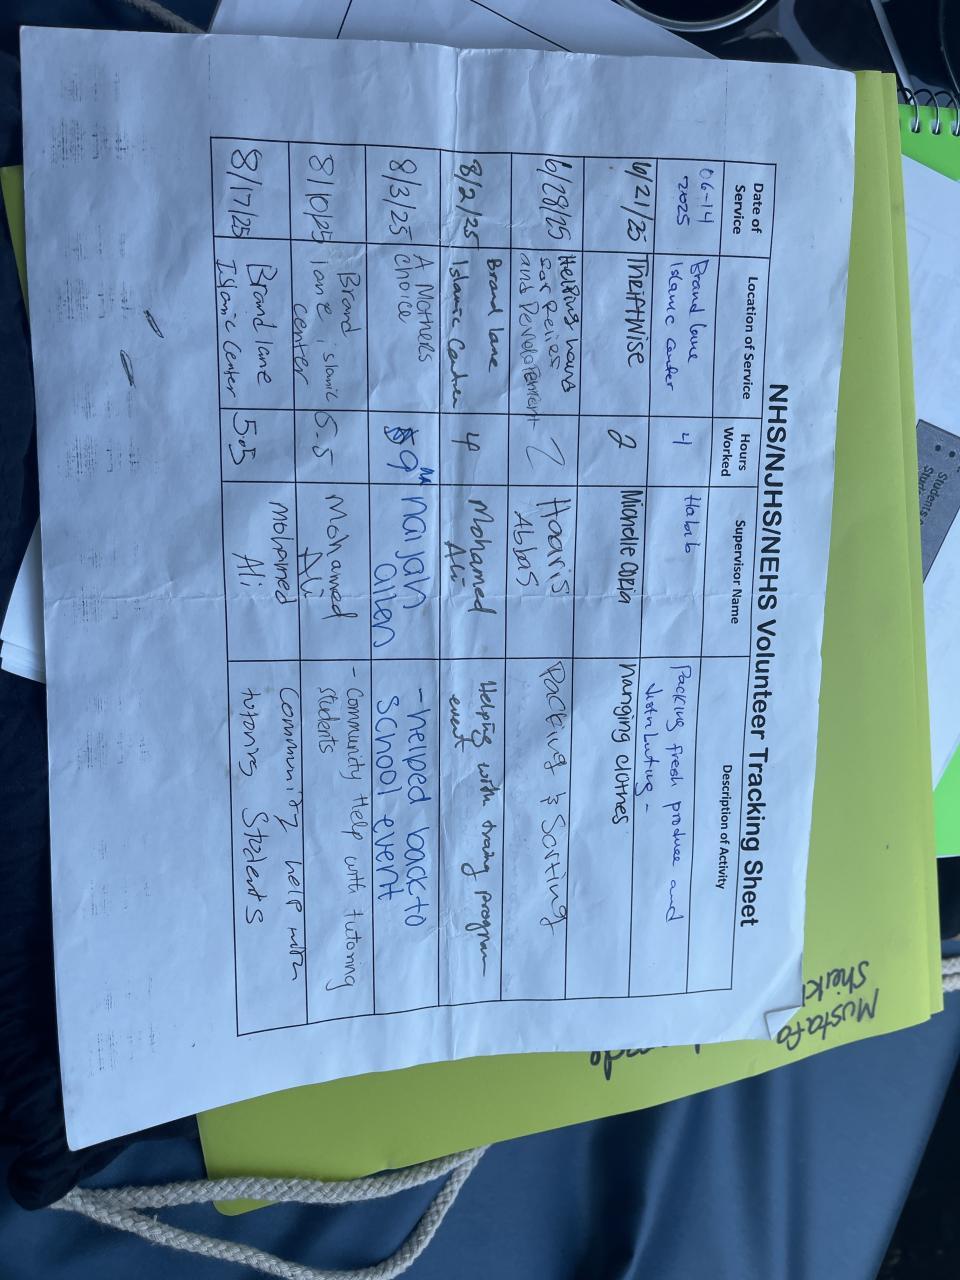 NHS/NJHS/NEHS Volunteer Tracking Sheet
Date of Service | Location of Service | Hours Worked | Supervisor Name | Description of Activity
06-14 2025 | Brand lane Islamic Center | 4 | Habib | Packing fresh produce and distributing -
6/21/25 | THRIFTWISE | 2 | Michelle | hanging clothes
6/28/25 | Helping hands for Relief and Development | 2 | Haaris Abbas | Packing & Sorting
8/2/25 | Brand lane Islamic Center | 4 | Mohamed Ali | Helping with program event
8/3/25 | A Mothers Choice | 9 | naijah allen | - helped back to school event
8/10/25 | Brand lane islamic center | 5.5 | Mohamed Ali | - Community Help with tutoring students
8/17/25 | Brand lane Islamic Center | 5.5 | Mohamed Ali | Community help with tutoring Students
Mustafa
Sheikh
Students